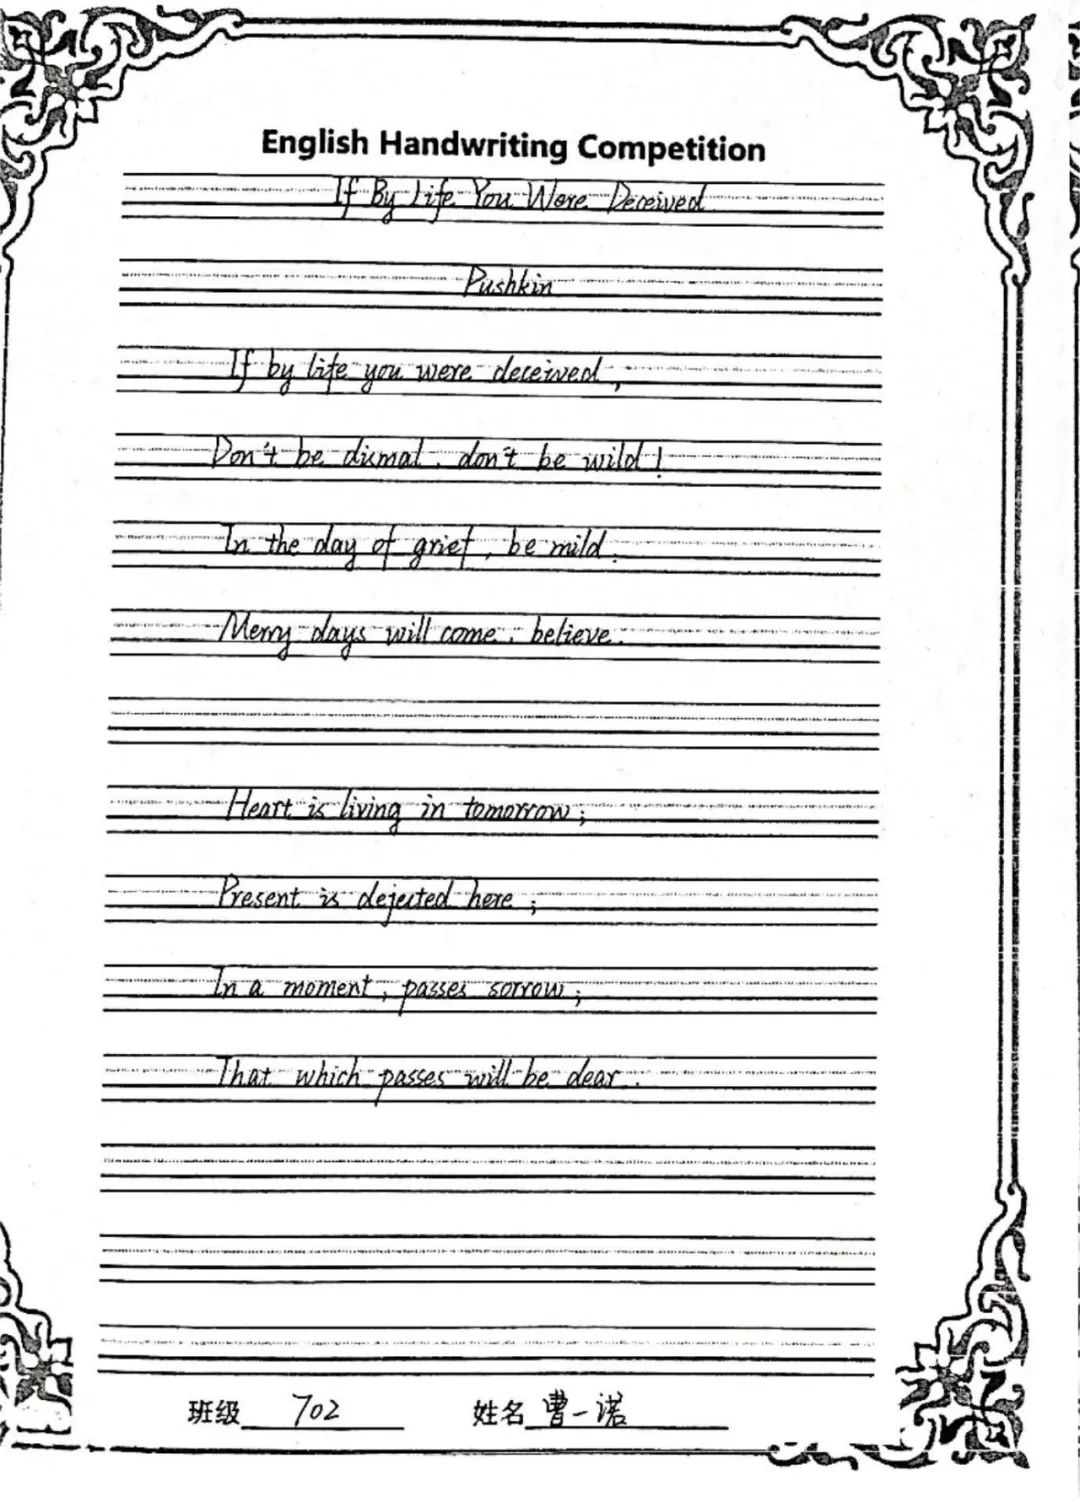 English Handwriting Competition
If By Life You Were Deceived
Pushkin
If by life you were deceived,
Don't be dismal, don't be wild!
In the day of grief, be mild.
Merry days will come, believe.
Heart is living in tomorrow;
Present is dejected here;
In a moment, passes sorrow;
That which passes will be dear.
班级 702 姓名 曹一诺